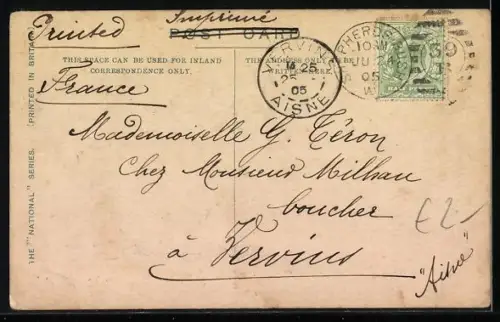 Imprimé
Printed
POST CARD.
THIS SPACE CAN BE USED FOR INLAND
CORRESPONDENCE ONLY.
THE ADDRESS ONLY
WRITTEN HERE.
France
VERVINS
14 25
25 - 1
05
AISNE
PHERDS
10
JU 24
05
W
Mademoiselle G. Téron
Chez Monsieur Milhau
boucher
à Vervins
"Aisne"
£2-
THE "NATIONAL" SERIES.
(PRINTED IN BRITAIN